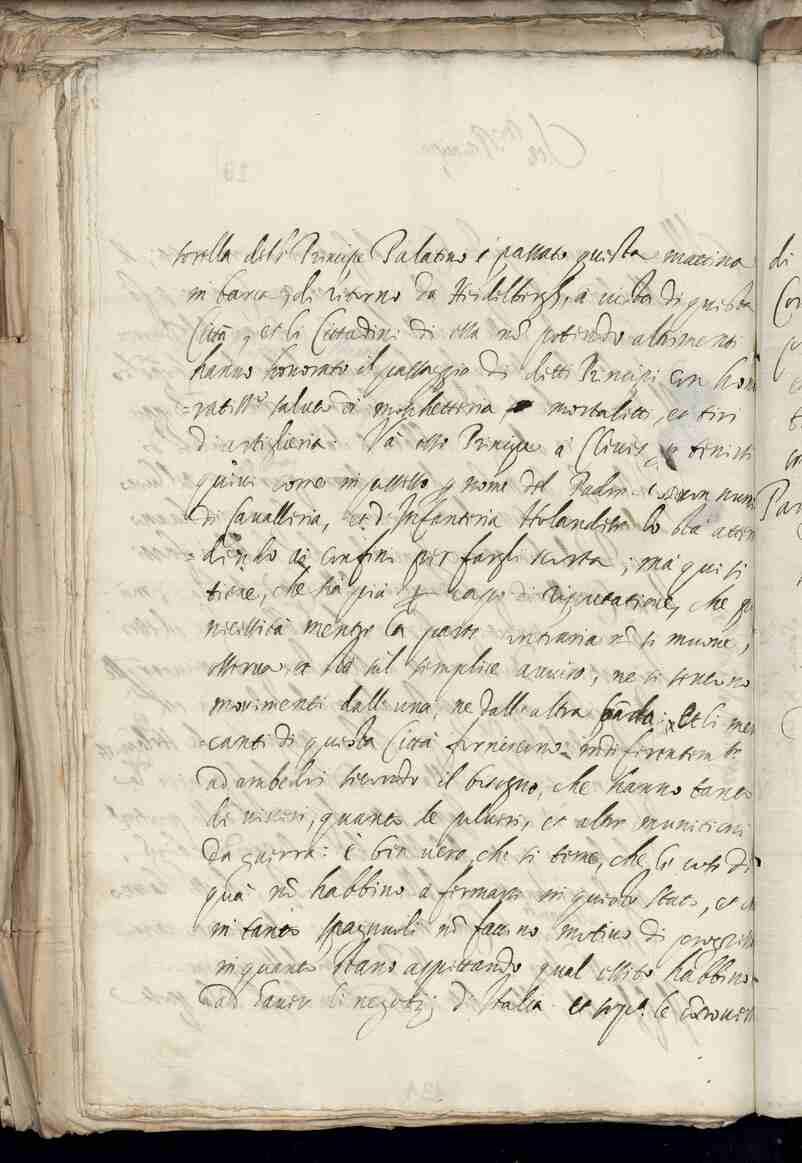 sorella dell' Principe Palatino è passato questa mattina
in barca di ritorno da Heidilbergh, a vista di questa
Città, et li Cittadini di essa nõ potendo altrimenti
hanno honorato il passaggio di detti Principi con hono
=ratiss.ᵃ salva di moschetteria, mortaletti, et tiri
di artiglieria. Và esso Principe à Clives, tenirsi
quivi come in possesso nome del Padre. con num
di Cavalleria, et d'Infanteria Holandese lo stà atten
=dendo ai confini per fargli scorta; mà qui si
tiene, che sia più capo di riputatione, che p
necessità mentre la parte contraria nõ si muove,
osserva, et stà sul semplice avviso, ne si sentono
movimenti dall' una, ne dall' altra banda: Et li mer
=canti di questa Città forniscono indiferentem.te
ad ambedui secondo il bisogno, che hanno tanto
di viveri, quanto de polveri, et altre munitioni
da guerra: è ben vero, che si teme, che le cose di
quà nõ habbino a fermarsi in questo stato, et ch
in tanto spagnuoli nõ faccino motivo di
in quanto stano aspettando qual essito habbino
ad haver li negotij d'Italia. et sop.ᵃ le